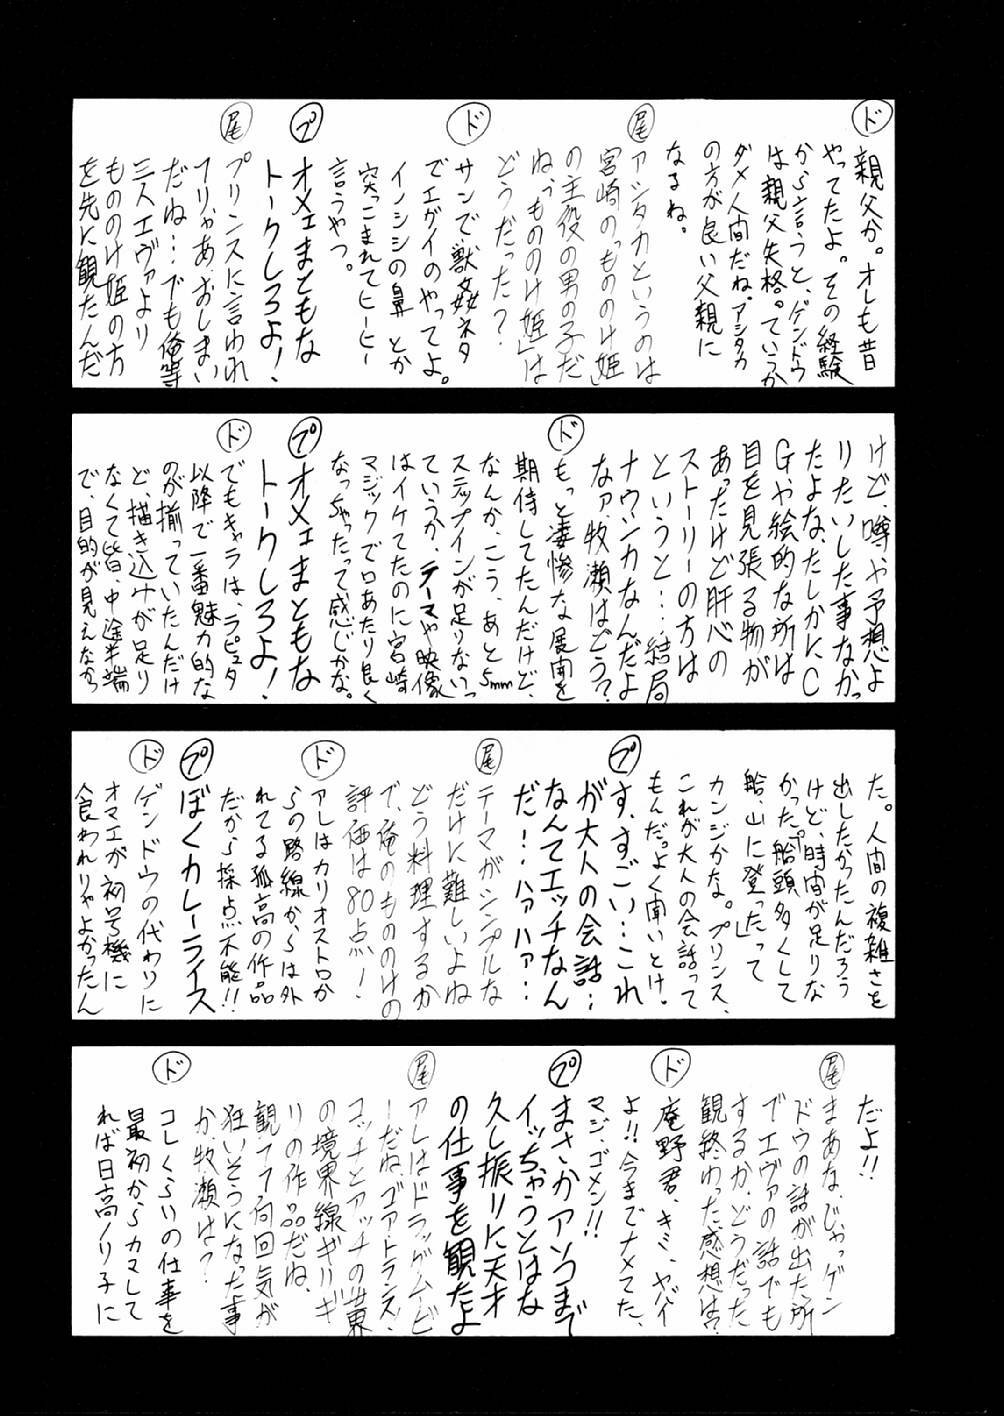 ド
親父か。オレも昔
やってたよ。その経験
から言うと、ゲンドウ
は親父失格。ていうか
ダメ人間だね。アシタカ
の方が良い父親に
なるね。
尾
アシタカというのは
宮崎の「もののけ姫」
の主役の男の子だ
ね。「もののけ姫」は
どうだった?
ド
サンで獣姦ネタ
でエグイのやってよ。
イノシシの鼻とか
突っこまれてヒーヒー
言うやつ。
プ
オメェまともな
トークしろよ!
尾
プリンスに言われ
フリゃあ、おしまい
だね…でも俺等
三人エヴァより
もののけ姫の方
を先に観たんだ
けど、噂や予想よ
りたいした事なかっ
たよな。たしかにC
Gや絵的な所は
目を見張る物が
あったけど肝心の
ストーリーの方は
というと…結局
ナウシカなんだよ
なァ、牧瀬はどう?
ド
もっと凄惨な展開を
期待してたんだけど、
なんか、こう、あと5mm
ステップインが足りないっ
ていうか、テーマや映像
はイケてたのに宮崎
マジックで口あたり良く
なっちゃったって感じかな。
プ
オメェまともな
トークしろよ!
ド
でもキャラは、ラピュタ
以降で一番魅力的な
のが揃っていたんだけ
ど、描き込みが足り
なくて皆、中途半端
で、目的が見えなかっ
た。人間の複雑さを
出したかったんだろう
けど、時間が足りな
かった。「船頭多くして
船、山に登った」って
カンジかな。プリンス、
これが大人の会話って
もんだ。よく聞いとけ。
プ
す、すごい…これ
が大人の会話…
なんてエッチなん
だ!!ハァハァ…
尾
テーマがシンプルな
だけに難しいよね
どう料理するか
で、俺のもののけの
評価は80点!
ド
アレはカリオストロか
らの路線からは外
れてる孤高の作品
だから採点不能!!
プ
ぼくカレーライス
ド
ゲンドウの代わりに
オマエが初号機に
食われりゃよかったん
だよ!!
尾
まあな、じゃっゲン
ドウの話が出た所
でエヴァの話でも
するか、どうだった
観終わった感想は?
ド
庵野君、キミ、ヤバイ
よ!!今までナメてた、
マジ、ゴメン!!
プ
まさかアソコまで
イッちゃうとはな
久し振りに天才
の仕事を観たよ
尾
アレはドラッグムービ
ーだね、ゴア・トランス、
コッチとアッチの世界
の境界線ギリギ
リの作品だね、
観てて何回気が
狂いそうになった事
か、牧瀬は?
ド
コレくらいの仕事を
最初からカマして
れば日高ノリ子に